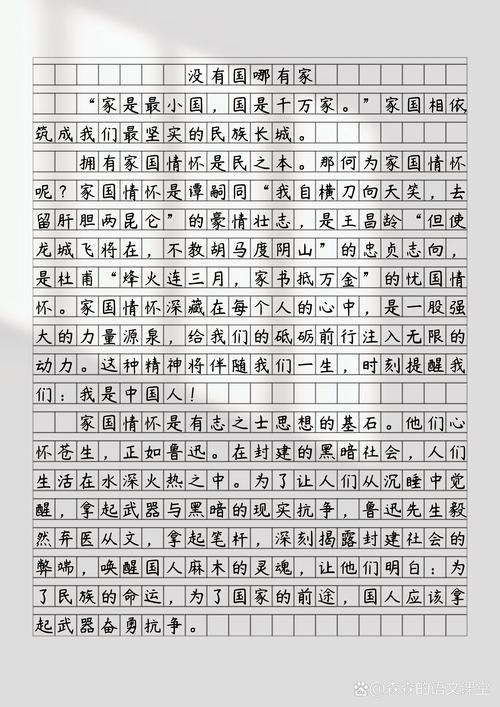 没有国哪有家
“家是最小国，国是千万家。”家国相依
筑成我们最坚实的民族长城。
拥有家国情怀是民之本。那何为家国情怀
呢？家国情怀是谭嗣同“我自横刀向天笑，去
留肝胆两昆仑”的豪情壮志，是王昌龄“但使
龙城飞将在，不教胡马度阴山”的忠贞志向，
是杜甫“烽火连三月，家书抵万金”的忧国情
怀。家国情怀深藏在每个人的心中，是一股强
大的力量源泉，给我们的砥砺前行注入无限的
动力。这种精神将伴随我们一生，时刻提醒我
们：我是中国人！
家国情怀是有志之士思想的基石。他们心
怀苍生，正如鲁迅。在封建的黑暗社会，人们
生活在水深火热之中。为了让人们从沉睡中觉
醒，拿起武器与黑暗的现实抗争，鲁迅先生毅
然弃医从文，拿起笔杆，深刻揭露封建社会的
弊端，唤醒国人麻木的灵魂，让他们明白：为
了民族的命运，为了国家的前途，国人应该拿
起武器奋勇抗争。
@森森的语文课堂